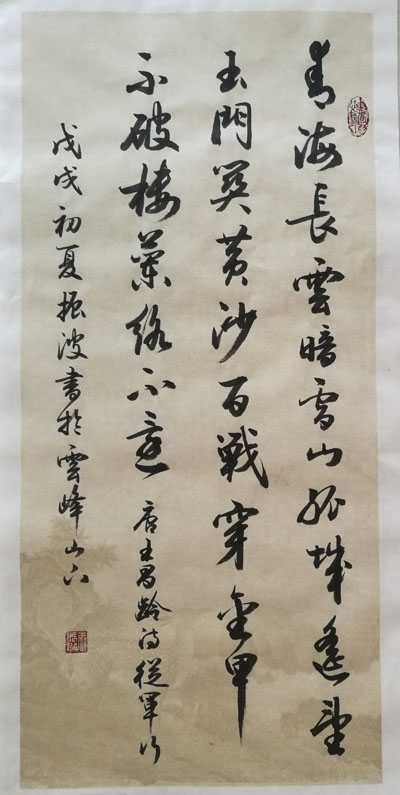 青海長雲暗雪山孤城遙望
玉門關黃沙百戰穿金甲
不破樓蘭終不還 唐王昌齡詩從軍行
戊戌初夏振波書於雲峰山下